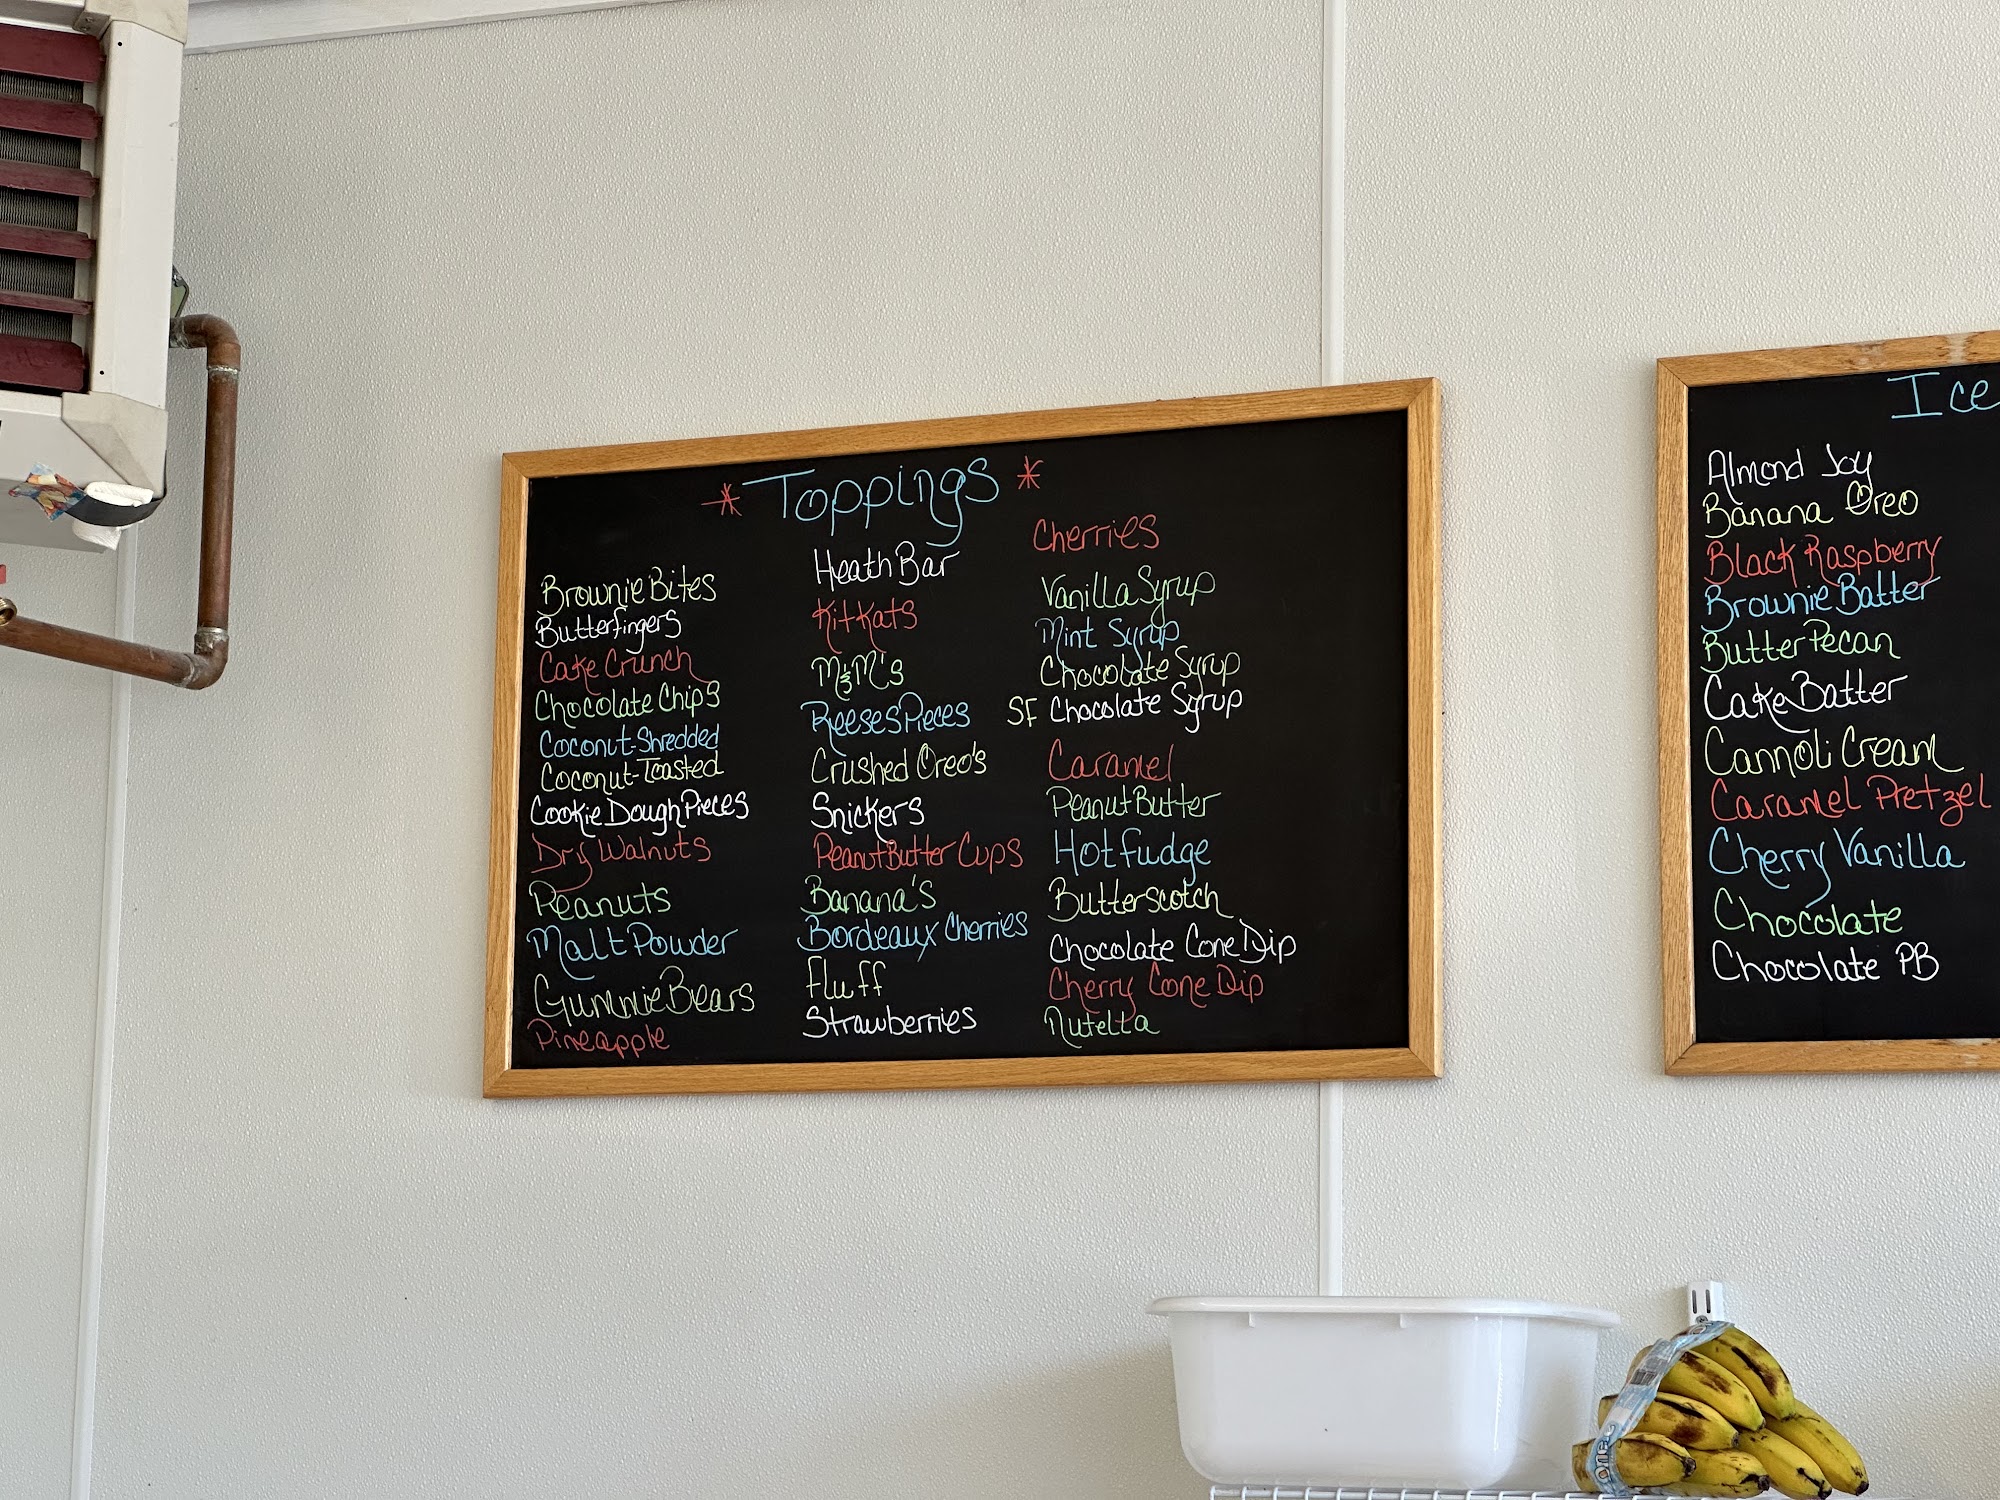 * Toppings *
Brownie Bites
Butterfingers
Cake Crunch
Chocolate Chips
Coconut-Shredded
Coconut-Toasted
Cookie Dough Pieces
Dry Walnuts
Peanuts
Malt Powder
Gummie Bears
Pineapple
Heath Bar
Kit Kats
M&M's
Reeses Pieces
Crushed Oreo's
Snickers
Peanut Butter Cups
Banana's
Bordeaux Cherries
Fluff
Strawberries
Cherries
Vanilla Syrup
Mint Syrup
Chocolate Syrup
SF Chocolate Syrup
Caramel
Peanut Butter
Hot Fudge
Butterscotch
Chocolate Cone Dip
Cherry Cone Dip
Nutella
Ice
Almond Joy
Banana Oreo
Black Raspberry
Brownie Batter
Butter Pecan
Cake Batter
Cannoli Cream
Caramel Pretzel
Cherry Vanilla
Chocolate
Chocolate PB